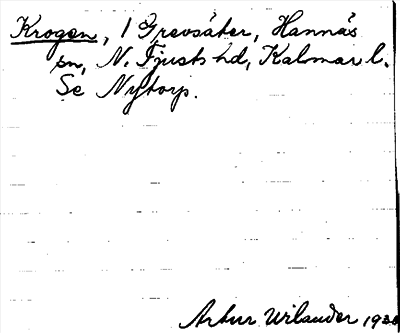 Krogen, 1 Grevsäter, Hannäs
sn, N. Tjusts hd, Kalmar l.
Se Nytorp.
Artur Wilander